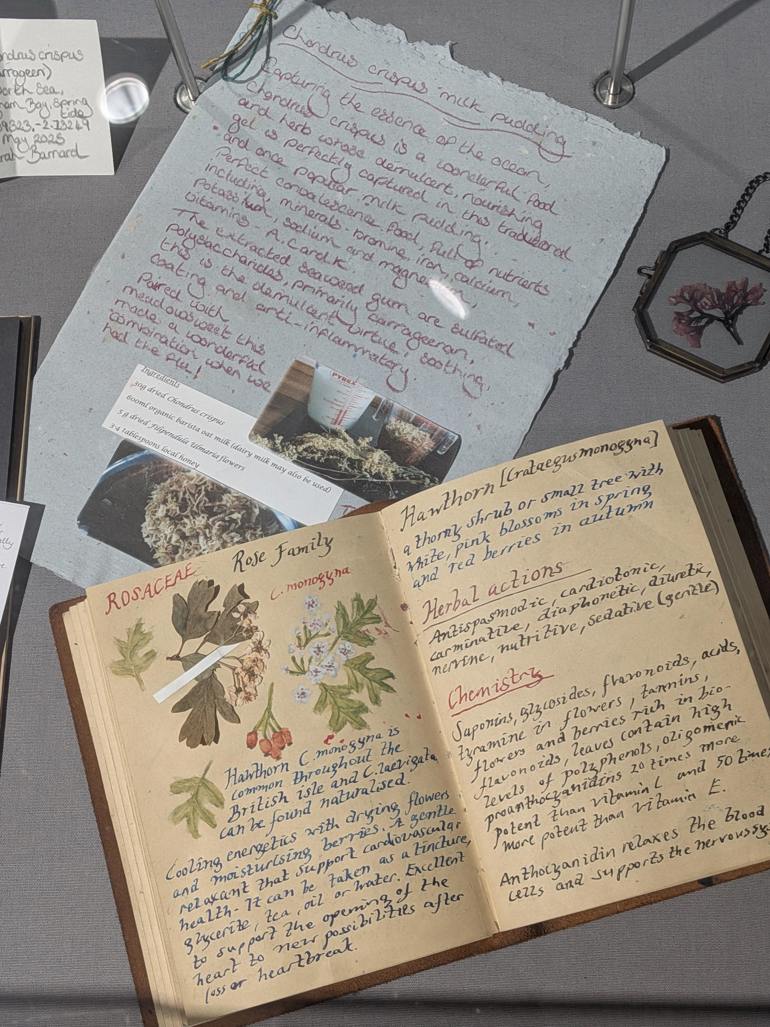 ndrus crispus
rrageen)
orth Sea,
ham Bay, Spring
tide
May 2025
rah Barnard
Chondrus crispus milk pudding
Capturing the essence of the ocean,
Chondrus crispus is a wonderful food
and herb whose demulcent, nourishing
gel is perfectly captured in this traditional
and once popular milk pudding.
Perfect convalescence food, full of nutrients
including, minerals- bromine, iron, calcium,
potassium, sodium and magnesium,
vitamins- A, C and K.
The extracted seaweed gum are sulfated
polysaccharides, primarily carrageenan,
this is the demulcent virtue, soothing,
coating and anti-inflammatory.
Paired with
meadowsweet this
made a wonderful
combination when we
had the flu!
Ingredients
30g dried Chondrus crispus
600ml organic barista oat milk (dairy milk may also be used)
5 g dried Filipendula Ulmaria flowers
3-4 tablespoons local honey
PYREX
ROSACEAE Rose Family
C. monogyna
Hawthorn C. monogyna is
common throughout the
British isle and C. laevigata
can be found naturalised.
Cooling energetics with drying flowers
and moisturising berries. A gentle
relaxant that support cardiovascular
health. It can be taken as a tincture,
glycerite, tea, oil or water. Excellent
to support the opening of the
heart to new possibilities after
loss or heartbreak.
Hawthorn [Crataegus monogyna]
a thorny shrub or small tree with
white, pink blossoms in spring
and red berries in autumn
Herbal actions
Antispasmodic, cardiotonic,
carminative, diaphonetic, diuretic,
nervine, nutritive, sedative (gentle)
Chemistry
Saponins, glycosides, flavonoids, acids,
tyramine in flowers, tannins,
flowers and berries rich in bio-
flavonoids, leaves contain high
levels of polyphenols, oligomeric
proanthocyanidins 20 times more
potent than vitamin C and 50 times
more potent than vitamin E.
Anthocyanidin relaxes the blood
cells and supports the nervous sy